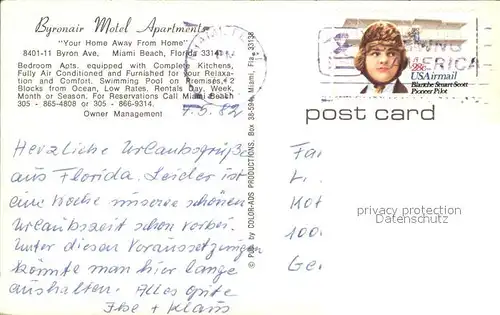 Byronair Motel Apartments
"Your Home Away From Home"
8401-11 Byron Ave., Miami Beach, Florida 33141
Bedroom Apts. equipped with Complete Kitchens,
Fully Air Conditioned and Furnished for your Relaxa-
tion and Comfort. Swimming Pool on Premises, 2
Blocks from Ocean, Low Rates, Rentals Day, Week,
Month or Season. For Reservations Call Miami Beach
305 - 865-4809 or 305 - 866-9314.
Owner Management
7.5.82
Herzliche Urlaubsgrüße
aus Florida. Leider ist
eine Woche unserer schönen
Urlaubszeit schon vorbei.
Unter diesen Voraussetzungen
könnte man hier lange
aushalten. Alles gute
Ilse + Klaus
© Pub. by COLOR-ADS PRODUCTIONS, Box 38-594, Miami, Fla. 33138
AMERICA
28c
USAirmail
Blanche Stuart Scott
Pioneer Pilot
post card
Fa
L
100
Ge
privacy protection
Datenschutz